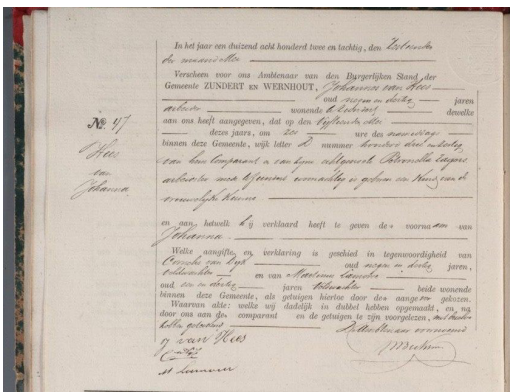 In het jaar een duizend acht honderd twee en tachtig, den Zestienden
der maand Mei
Verscheen voor ons Ambtenaar van den Burgerlijken Stand der
Gemeente ZUNDERT EN WERNHOUT, Johannes van Hees
oud negen en dertig jaren
arbeider wonende te Zundert dewelke
aan ons heeft aangegeven, dat op den Vijftienden Mei
dezes jaars, om zes ure des namiddags
binnen deze Gemeente, wijk letter D nummer honderd drie en zestig
van hem Comparant en van zijne echtgenoote Petronella
arbeidster mede te Zundert woonachtig is geboren een Kind van de
vrouwelijke Kunne
No. 47
Hees
van
Johanna
en aan hetwelk hij verklaard heeft te geven den voornaam van
Johanna
Welke aangifte en verklaring is geschied in tegenwoordigheid van
Cornelis van Dijk oud negen en dertig jaren,
veldwachter en van Marinus
oud en dertig jaren veldwachter beide wonende
binnen deze Gemeente, als getuigen hiertoe door den aangever gekozen.
Waarvan akte: welke wij dadelijk in dubbel hebben opgemaakt, en na
door ons aan den comparant en de getuigen te zijn voorgelezen, met hen
hebben geteekend
De Ambtenaar voornoemd
J van Hees